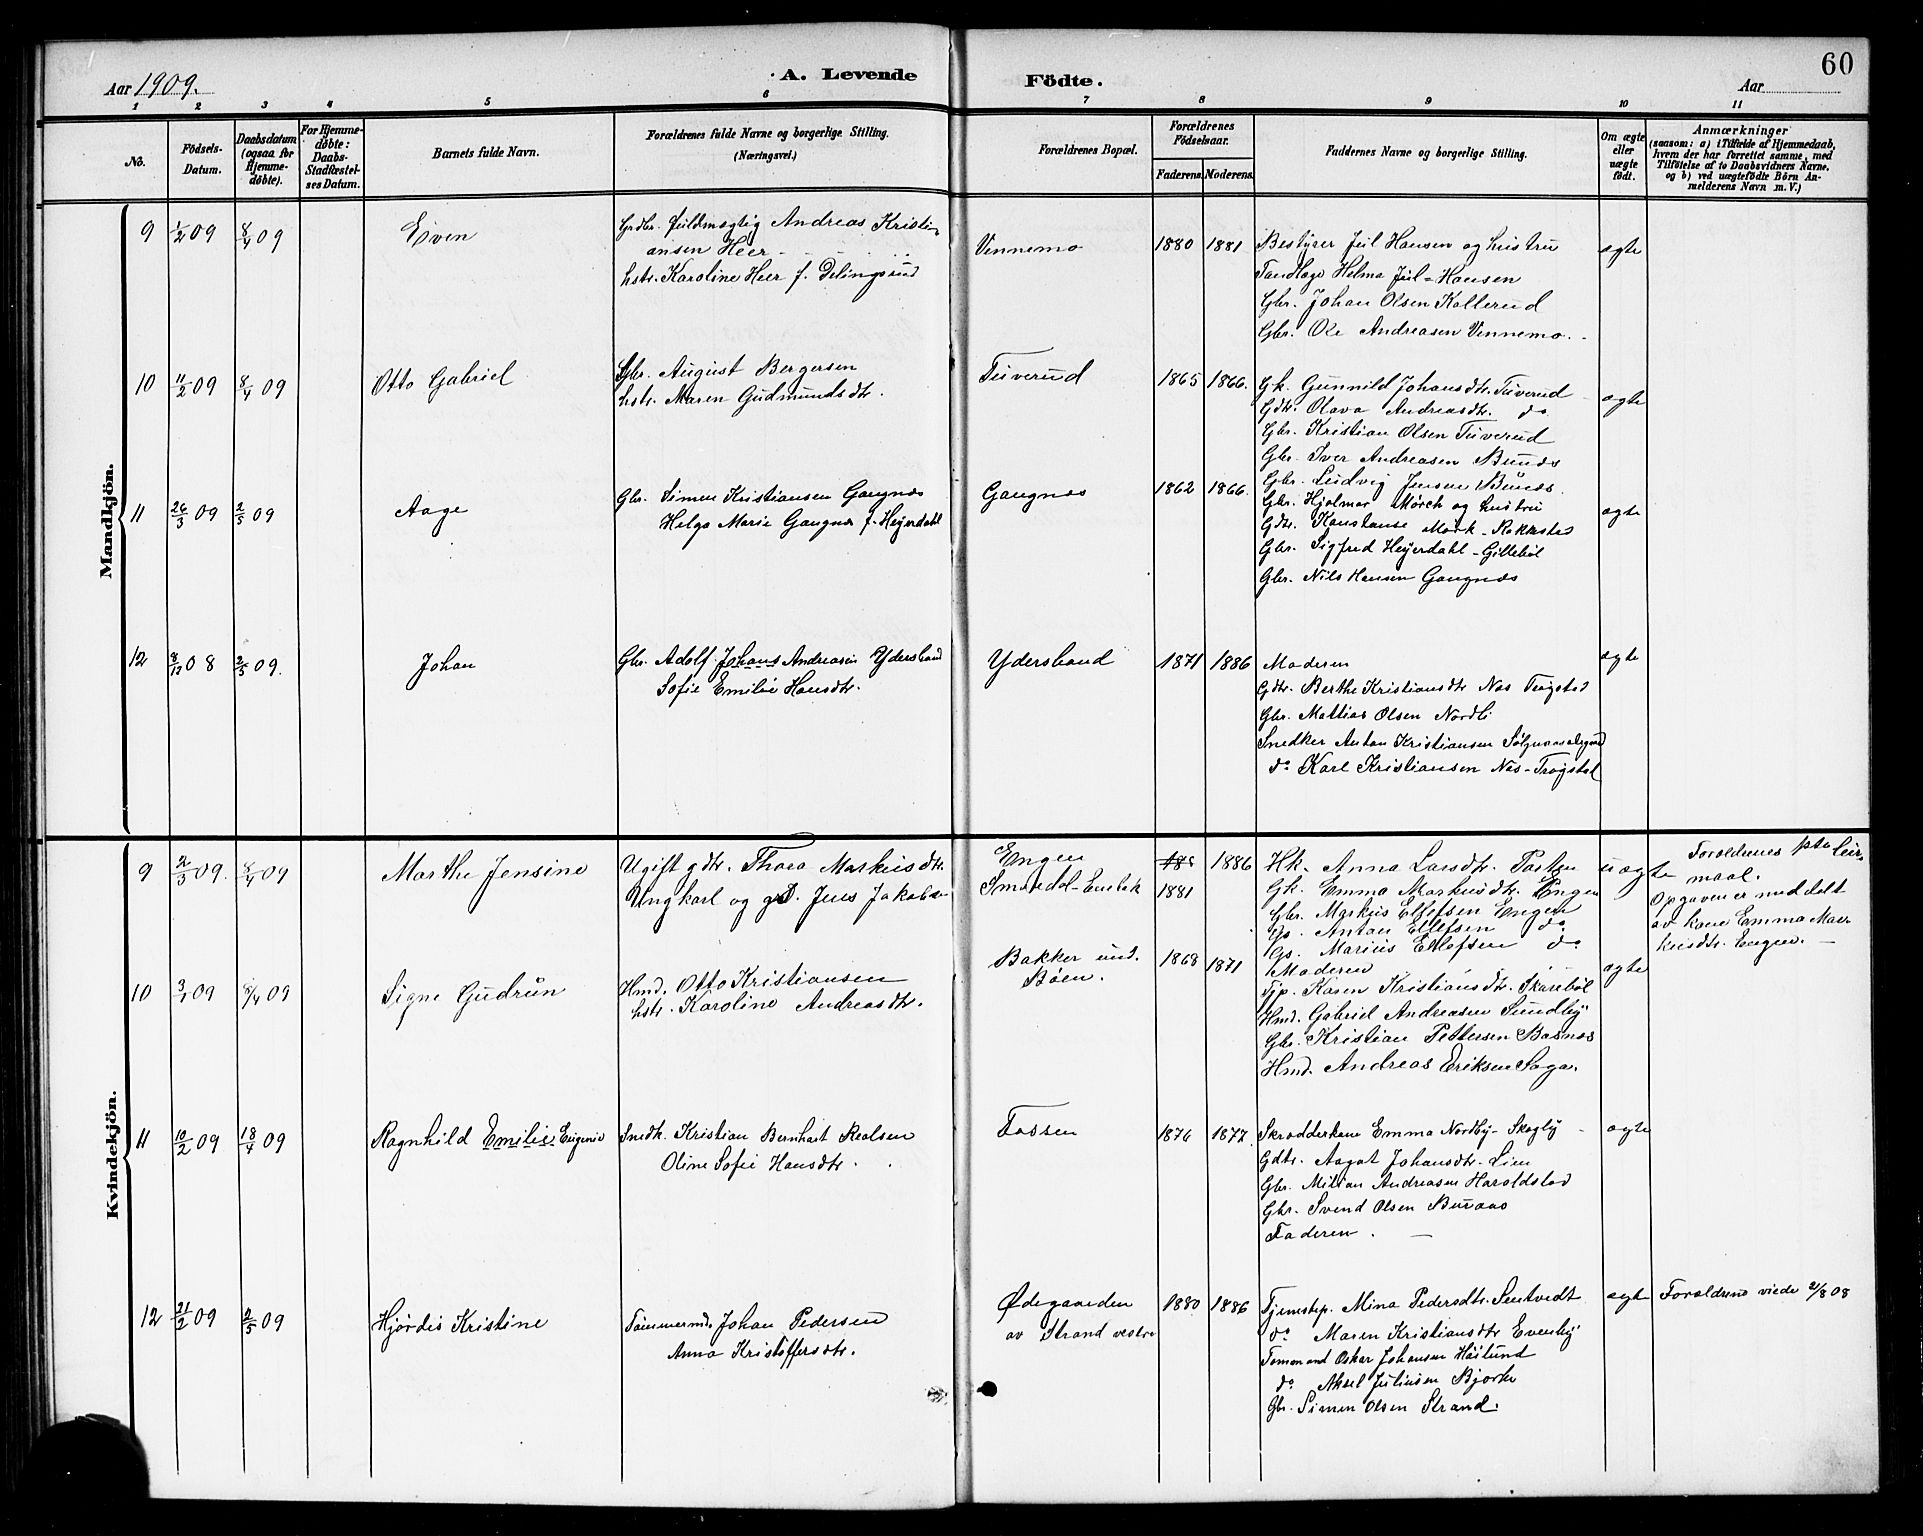 60
Aar 1909.
A. Levende
Födte.
Aar
1 2 3 4 5 6 7 8 9 10 11
No.
Födsels-
Datum.
Daabsdatum
(ogsaa for
Hjemme-
døbte).
For Hjemme-
døbte:
Daabs-
Stadfæstel-
ses Datum.
Barnets fulde Navn.
Forældrenes fulde Navne og borgerlige Stilling.
(Næringsvei.)
Forældrenes Bopæl.
Forældrenes
Födselsaar.
Faderens. Moderens.
Faddernes Navne og borgerlige Stilling.
Om ægte
eller
uægte
født.
Anmærkninger
(saasom: a) i Tilfælde af Hjemmedaab,
hvem der har forrettet samme, med
Tilføielse af to Daabsvidners Navne,
og b) ved uægtefødte Börn An-
melderens Navn m. V.)
Mandkjön.
9 1/2 09 8/4 09 Even
Grdbr. fuldmægtig Andreas Kristi-
ansen Heer
hstr. Karoline Heer f. Delingsrud
Vennemo 1880 1881
Bestyrer Jul Hansen og hustru
Helma Juul-Hansen
Gbr. Johan Olsen Kallerud
Gbr. Ole Andreasen Vennemo.
ægte
10 11/2 09 8/4 09 Otto Gabriel
Gbr. August Bergersen
hstr. Maren Gudmundsdtr.
Tuverud 1865 1866.
Gk. Gunnild Johansdtr. Tuverud
Gdtr. Olava Andreasdtr. do
Gbr. Kristian Olsen Tuverud
Gbr. Iver Andreasen Bunæs
Gbr. Ludvig Jensen Bunæs.
ægte
11 26/3 09 2/5 09 Aage
Gbr. Simen Kristiansen Gangnæs
Helga Marie Gangnæs f. Heyerdahl
Gangnæs 1862 1866.
Gbr. Hjalmar Mørch og hustru
Gdtr. Konstanse Mørk - Rakkestad
Gbr. Sigfred Heyerdahl - Gillebøl
Gbr. Nils Hansen Gangnæs
ægte
12 8/12 08 2/5 09. Johan
Gbr. Adolf Johans Andreasen Ydersbond
Sofie Emilie Hansdtr.
Ydersbond 1871 1886
Moderen
Gdtr. Berthe Kristiansdtr Næs Trøgstad
Gbr. Mattias Olsen Nordli
Snedker Anton Kristiansen
do Karl Kristiansen Næs-Trøgstad
ægte
Kvindekjön.
9 2/3 09. 8/4 09 Marthe Jensine
Ugift gdtr. Thora Markusdtr.
Ungkarl og gs. Jens Jakobsen
Engen
Smaadal-Enebak
188 1886
1881
Hk. Anna Larsdtr.
Gk. Emma Markusdtr. Engen
Gbr. Markus Ellefsen Engen
Gs. Anton Ellefsen do
Gs. Marius Ellefsen do
uægte
Forældrenes 1ste leier-
maal.
Opgaven er meddelt
av kone Emma Mar-
kusdtr. Engen.
10 3/1 09 8/4 09 Signe Gudrun
Hmd. Otto Kristiansen
hstr. Karoline Andreasdtr.
Bakker und.
Böen.
1868 1871
Moderen
Tjp. Karen Kristiansdtr. Skarebøl
Hmd. Gabriel Andreasen Sundby
Gbr. Kristian Pettersen Basnæs
Hmd. Andreas Eriksen Saga.
ægte
11 10/2 09 18/4 09 Ragnhild Emilie Eugenie
Snedk. Kristian Bernhart Realsen
Oline Sofie Hansdtr.
Fossen 1876 1877.
Skrædderkone Emma Nordby-Skogly
Gdtr. Aagot Johansdtr. Lien
Gbr. Milian Andreasen Haraldstad
Gbr. Svend Olsen Buraas
Faderen.
ægte
12 21/2 09 2/5 09 Hjördis Kristine
Tømmermd. Johan Pedersen
Anna Kristoffersdtr.
Ødegaarden
av Strand vestre
1880 1886
Tjenestep. Mina Pedersdtr. Sentvedt
do Maren Kristiansdtr Evenby
Tømmermand Oskar Johansen Haslund
do Aksel Juliusen Bjørke
Gbr. Simen Olsen Strand.
ægte
Forældrene viede 21/8 08